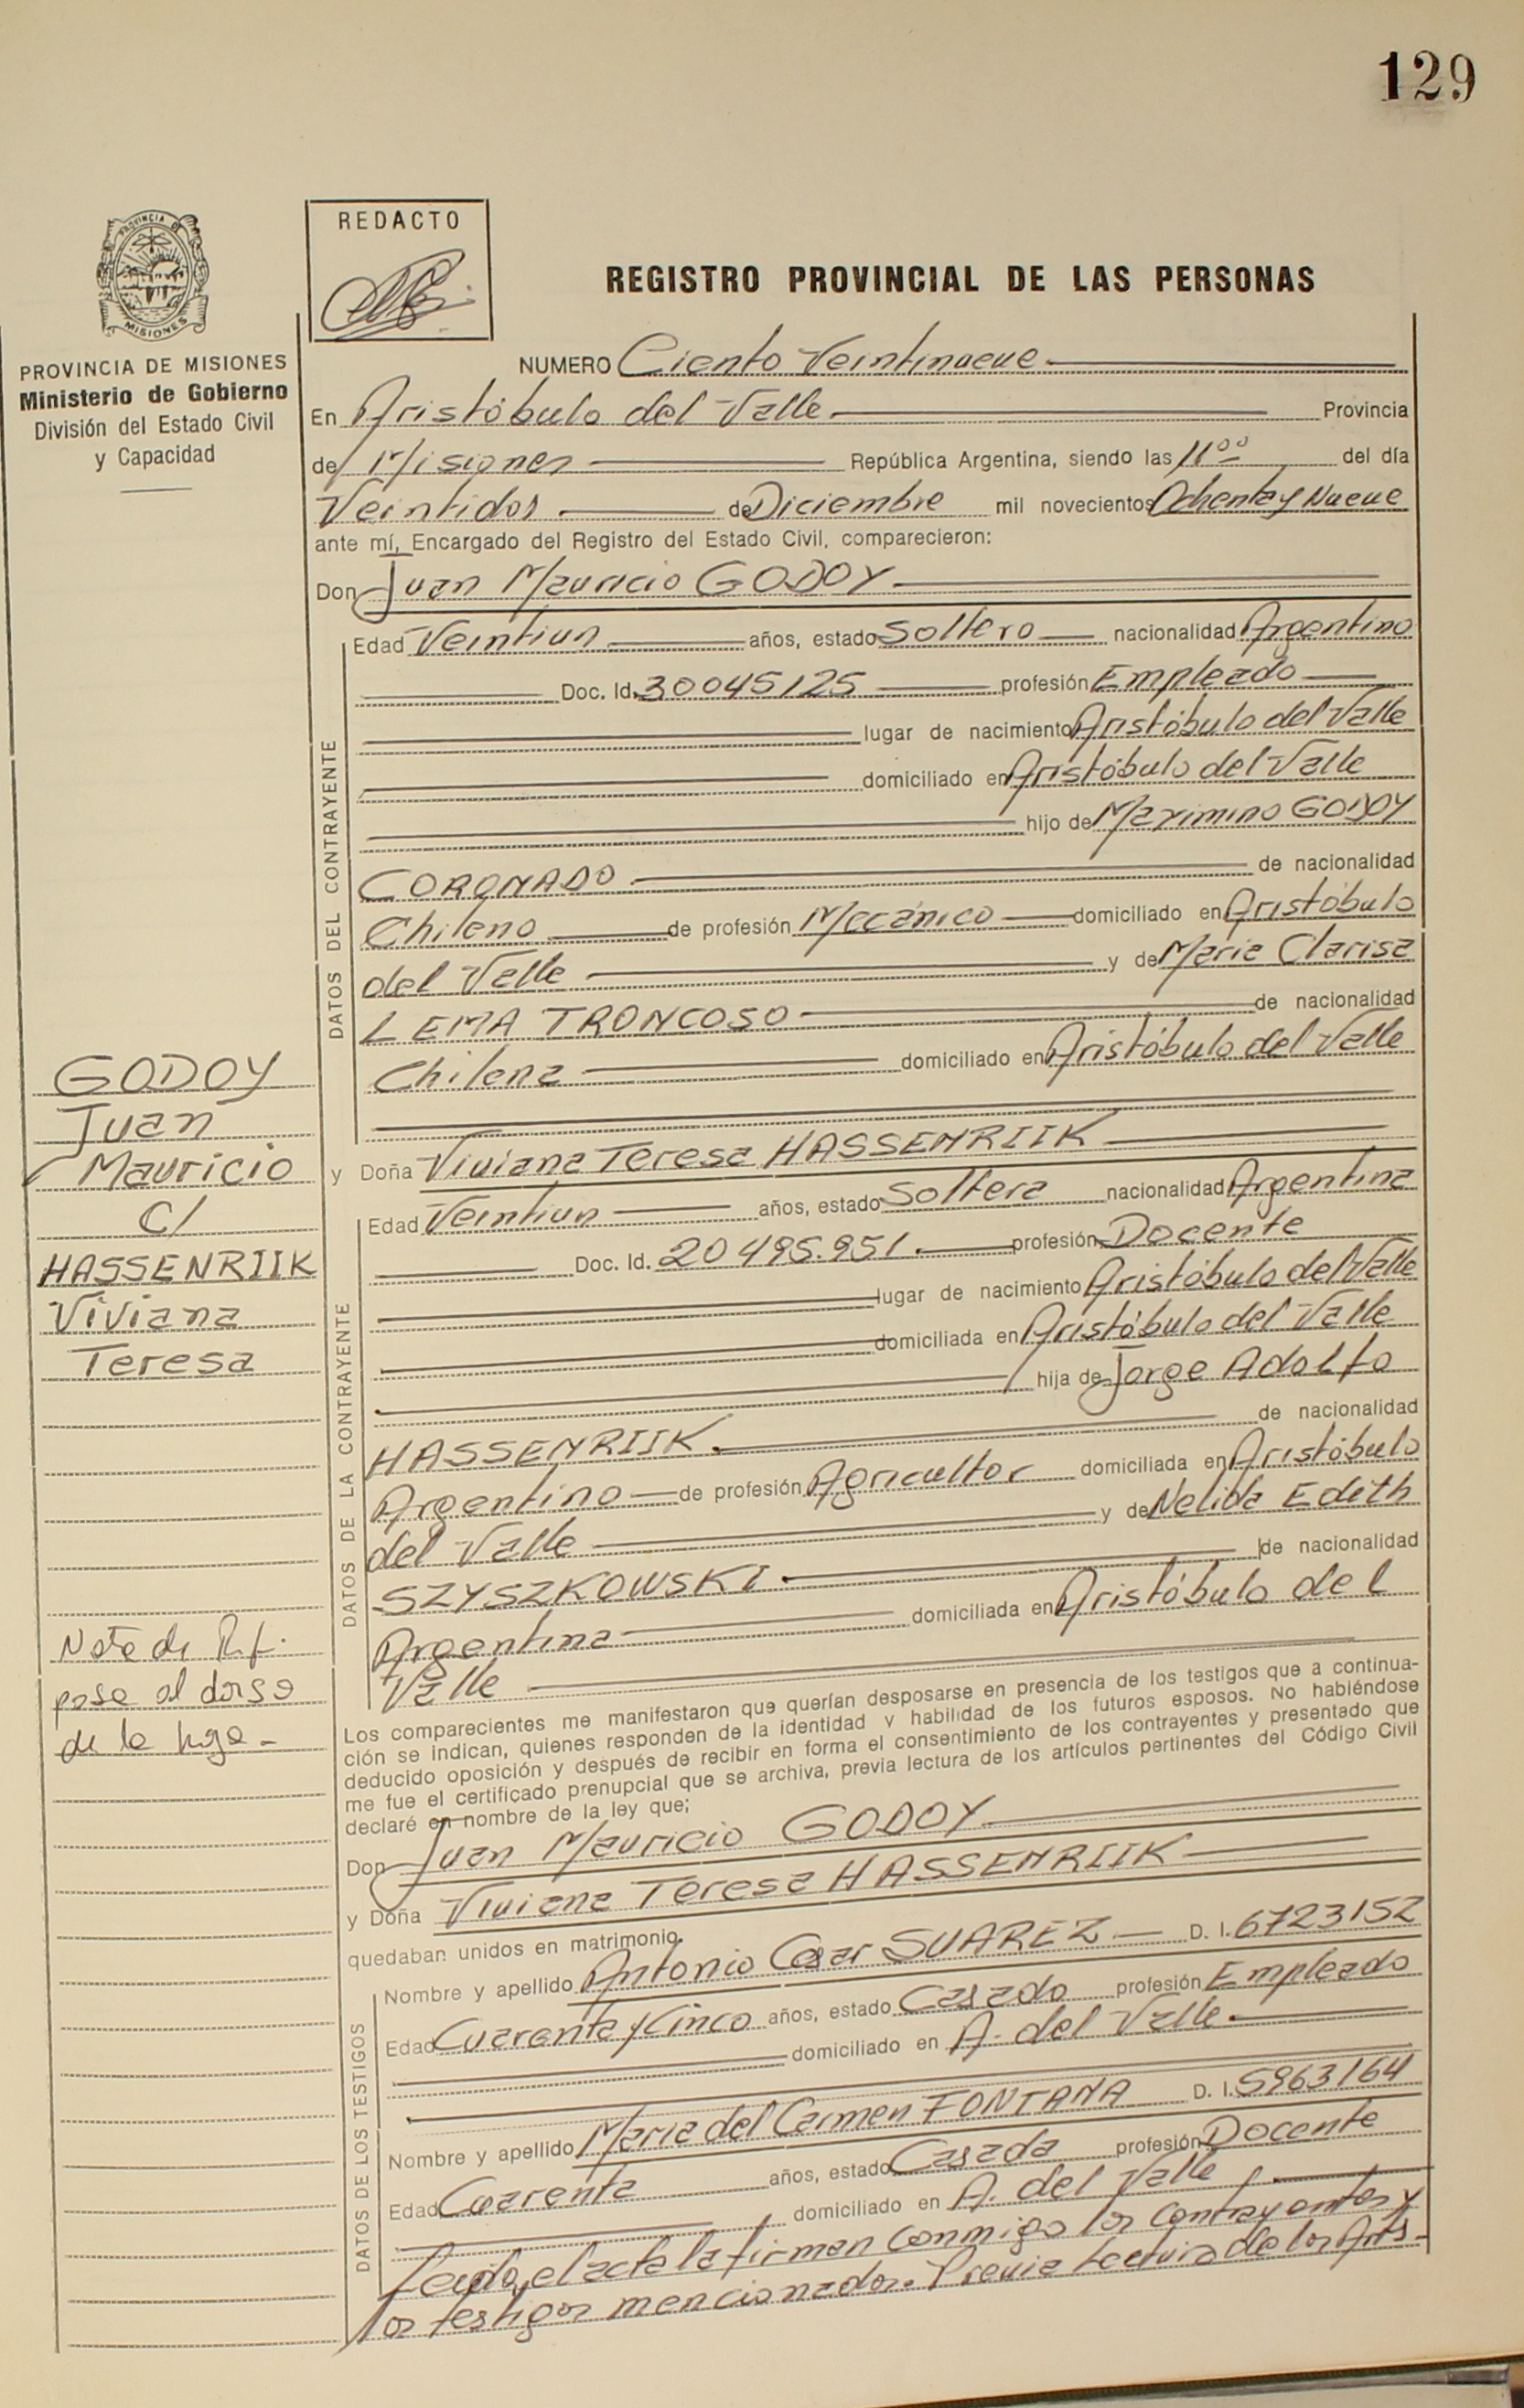 129
PROVINCIA DE
MISIONES
PROVINCIA DE MISIONES
Ministerio de Gobierno
División del Estado Civil
y Capacidad
REDACTO
REGISTRO PROVINCIAL DE LAS PERSONAS
NUMERO Ciento Veintinueve
En Aristóbulo del Valle Provincia
de Misiones República Argentina, siendo las 11⁰⁰ del día
Veintidos de Diciembre mil novecientos Ochenta y Nueve
ante mí, Encargado del Registro del Estado Civil, comparecieron:
Don Juan Mauricio GODOY
DATOS DEL CONTRAYENTE
Edad Veintiun años, estado Soltero nacionalidad Argentino
Doc. Id. 30045125 profesión Empleado
lugar de nacimiento Aristóbulo del Valle
domiciliado en Aristóbulo del Valle
hijo de Maximino GODOY
CORONADO de nacionalidad
Chileno de profesión Mecánico domiciliado en Aristóbulo
del Valle y de Maria Clarisa
LEMA TRONCOSO de nacionalidad
Chilena domiciliado en Aristóbulo del Valle
y Doña Viviana Teresa HASSENRIIK
DATOS DE LA CONTRAYENTE
Edad Veintiun años, estado Soltera nacionalidad Argentina
Doc. Id. 20495.951. profesión Docente
lugar de nacimiento Aristóbulo del Valle
domiciliada en Aristóbulo del Valle
hija de Jorge Adolfo
HASSENRIIK. de nacionalidad
Argentino de profesión Agricultor domiciliada en Aristóbulo
del Valle y de Nelida Edith
SZYSZKOWSKI de nacionalidad
Argentina domiciliada en Aristóbulo del
Valle
Los comparecientes me manifestaron que querían desposarse en presencia de los testigos que a continua-
ción se indican, quienes responden de la identidad y habilidad de los futuros esposos. No habiéndose
deducido oposición y después de recibir en forma el consentimiento de los contrayentes y presentado que
me fue el certificado prenupcial que se archiva, previa lectura de los artículos pertinentes del Código Civil
declaré en nombre de la ley que;
Don Juan Mauricio GODOY
y Doña Viviana Teresa HASSENRIIK
quedaban unidos en matrimonio.
DATOS DE LOS TESTIGOS
Nombre y apellido Antonio Cesar SUAREZ D. I. 6723152
Edad Cuarenta y Cinco años, estado Casado profesión Empleado
domiciliado en A. del Valle
Nombre y apellido Maria del Carmen FONTANA D. I. 5963164
Edad Cuarenta años, estado Casada profesión Docente
domiciliado en A. del Valle
Leida el acta la firman conmigo los contrayentes y
los testigos mencionados. Previa Lectura de los Arts.
GODOY
Juan
Mauricio
C/
HASSENRIIK
Viviana
Teresa
Nota de Ref.
pase al dorso
de la hoja